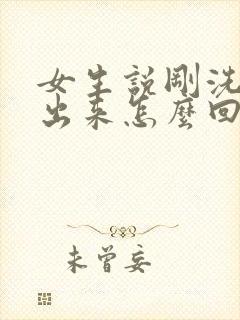 女生說剛洗
出來怎麼回
未曾妄